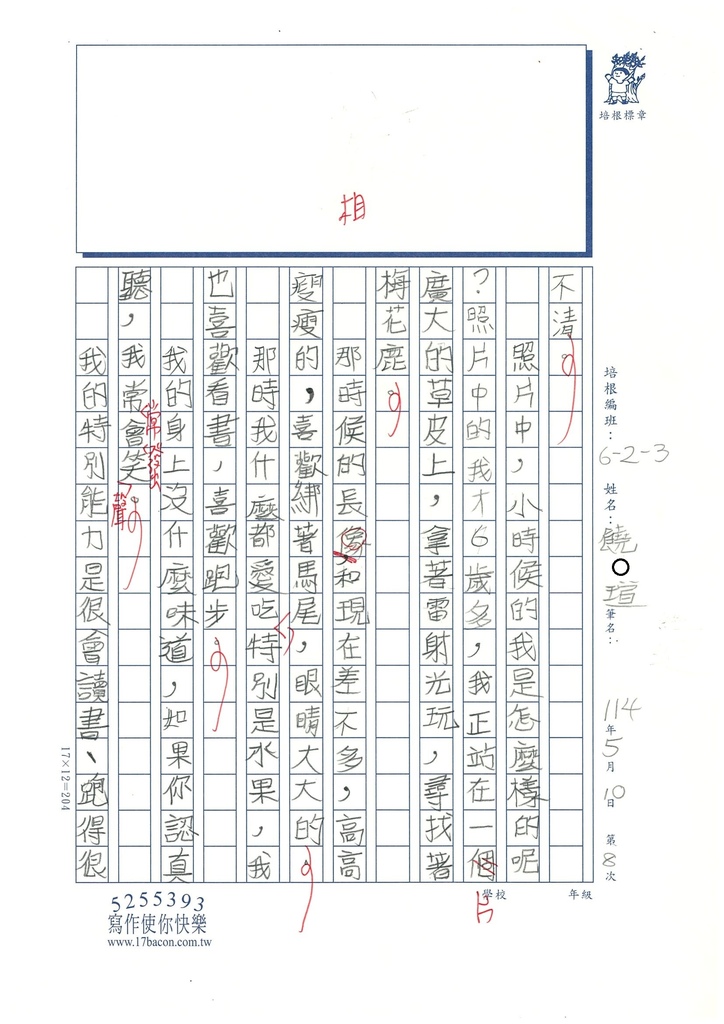 培根標章
相
培根編班：6-2-3 姓名：饒○瑄 筆名：
114年5月10日 第8次
不清。
照片中，小時候的我是怎麼樣的呢
？照片中的我才6歲多，我正站在一個
片
廣大的草皮上，拿著雷射光玩，尋找著
梅花鹿。
那時候的長像和現在差不多，高高
瘦瘦的，喜歡綁著馬尾，眼睛大大的。
那時我什麼都愛吃特別是水果，我
，
也喜歡看書，喜歡跑步。
我的身上沒什麼味道，如果你認真
聽，我常會笑。
常發出
聲
我的特別能力是很會讀書、跑得很
17×12=204
學校 年級
5255393
寫作使你快樂
www.17bacon.com.tw